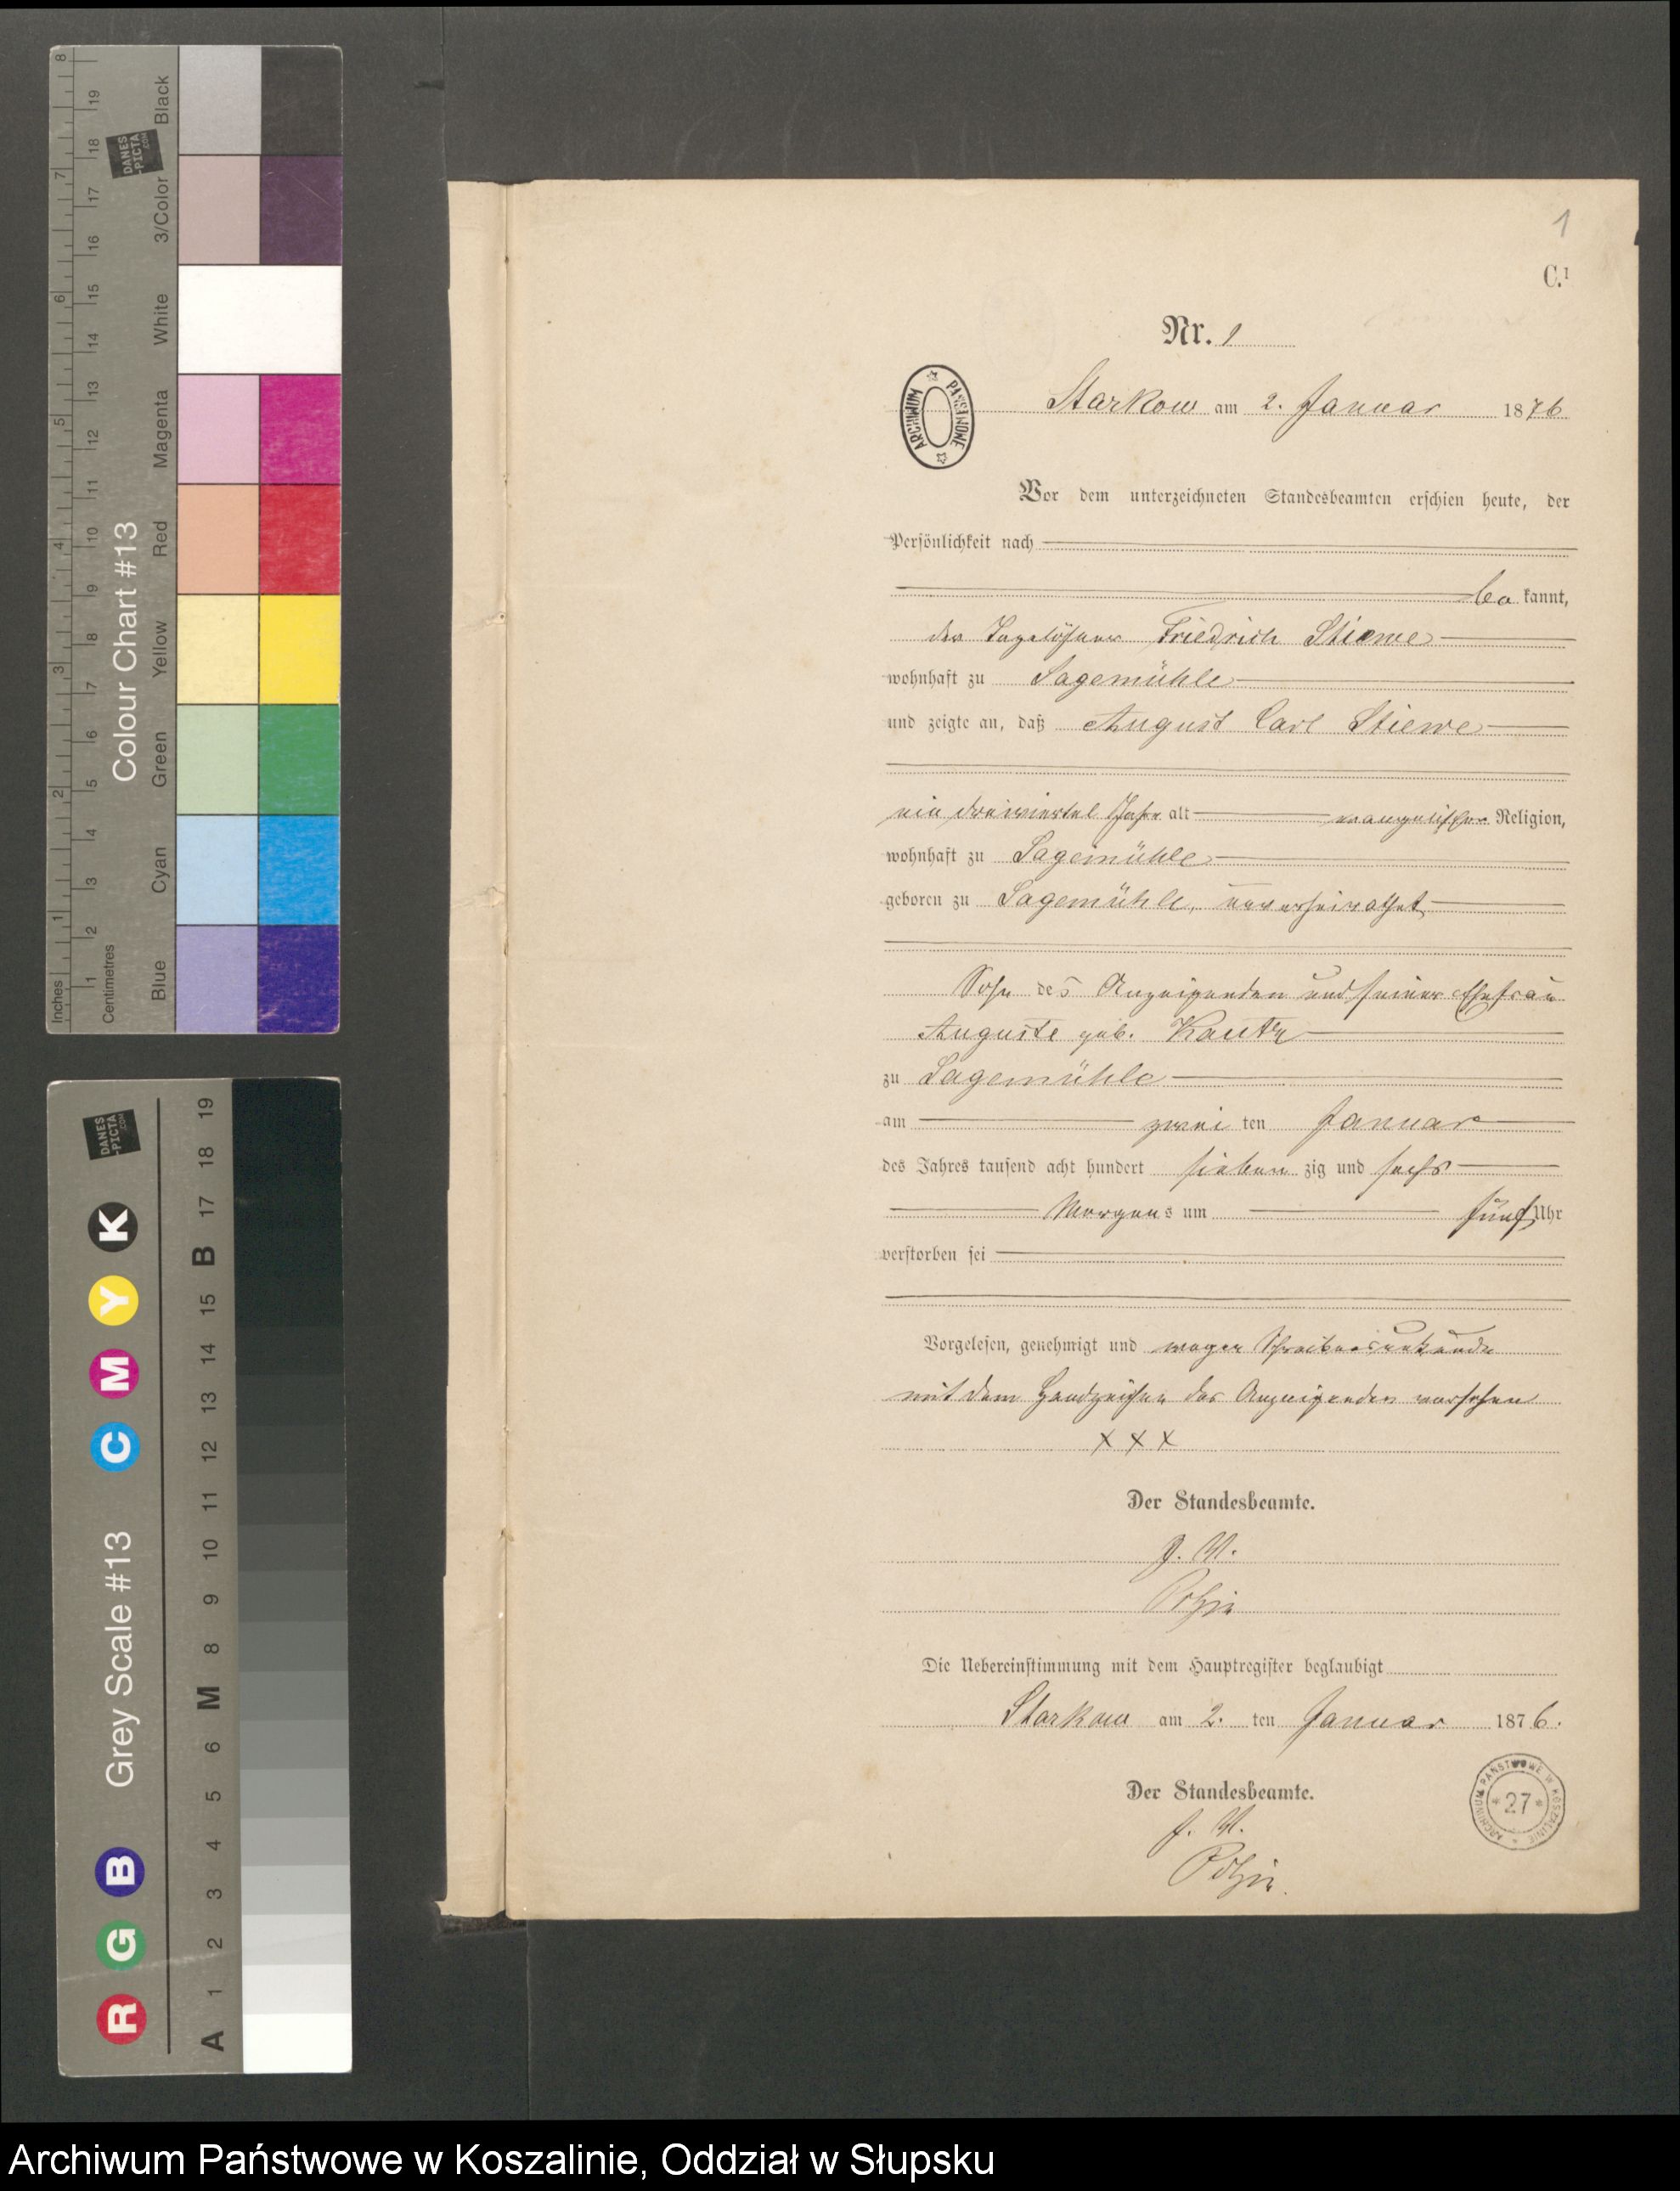 1
C.¹
Nr. 1
Starkow am 2. Januar 1876
ARCHIWUM PAŃSTWOWE
Vor dem unterzeichneten Standesbeamten erschien heute, der
Persönlichkeit nach
be kannt,
der Tagelöhner Friedrich Stiewe
wohnhaft zu Sagemühle
und zeigte an, daß August Carl Stiewe
ein dreiviertel Jahr alt evangelischer Religion,
wohnhaft zu Sagemühle
geboren zu Sagemühle, unverheirathet
Sohn des Anzeigenden und seiner Ehefrau
Auguste geb. Kautz
zu Sagemühle
am zwei ten Januar
des Jahres tausend acht hundert sieben zig und sechs
Morgens um fünf Uhr
verstorben sei
Vorgelesen, genehmigt und wegen Schreibensunkunde
mit dem Handzeichen des Anzeigenden versehen
x x x
Der Standesbeamte.
Die Uebereinstimmung mit dem Hauptregister beglaubigt
Starkow am 2. ten Januar 1876.
Der Standesbeamte.
ARCHIWUM PAŃSTWOWE W KOSZALINIE
* 27 *
Colour Chart #13
Inches 1 2 3 4 5 6 7 8
Centimetres 1 2 3 4 5 6 7 8 9 10 11 12 13 14 15 16 17 18 19
Blue Cyan Green Yellow Red Magenta White 3/Color Black
DANES
-PICTA
.COM
Grey Scale #13
R G B C M Y K
A 1 2 3 4 5 6 M 8 9 10 11 12 13 14 15 B 17 18 19
DANES
-PICTA
.COM
Archiwum Państwowe w Koszalinie, Oddział w Słupsku